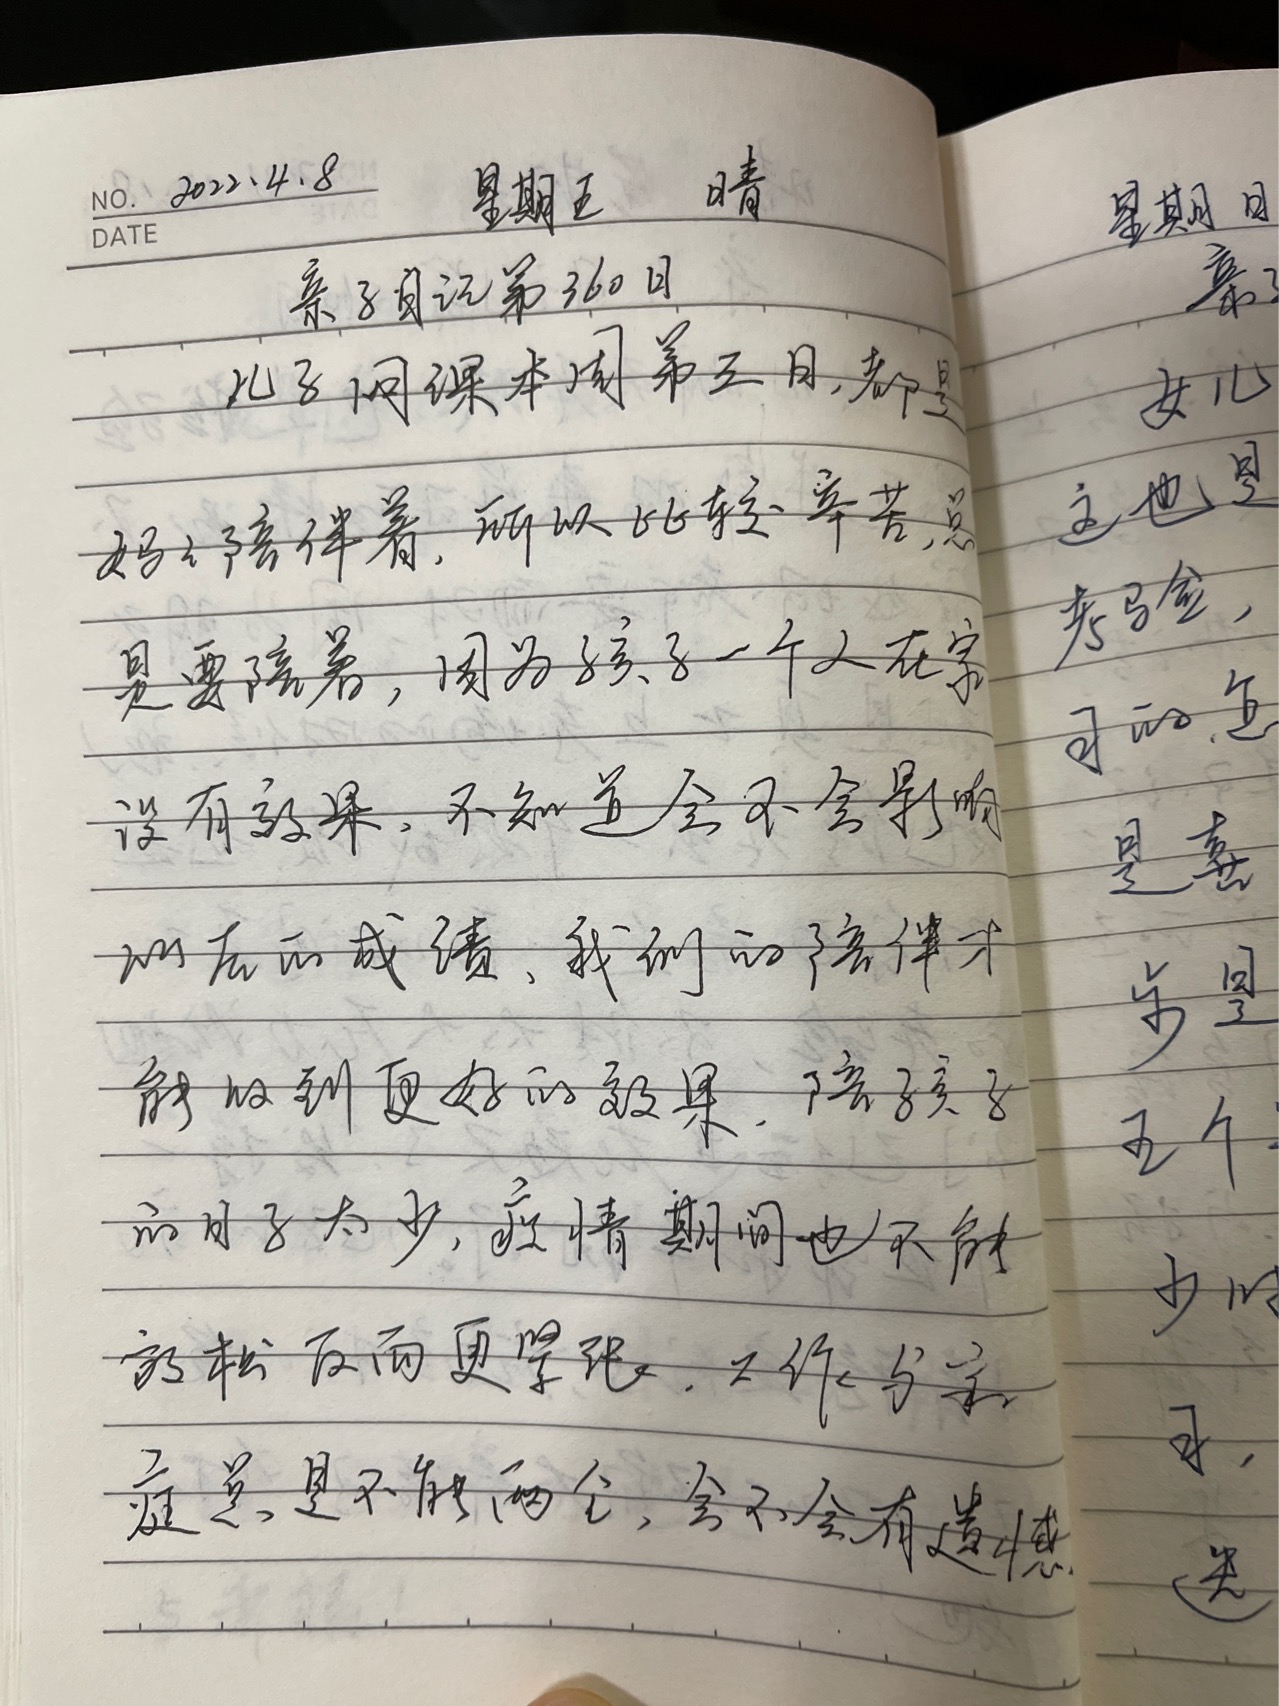 NO. 2022.4.8 星期五 晴
DATE
亲子日记第360日
儿子网课本周第五日,都是
妈妈陪伴着,所以比较辛苦,总
是要陪着,因为孩子一个人在家
没有效果,不知道会不会影响
以后的成绩、我们的陪伴才
能收到更好的效果.陪孩子
的日子太少,疫情期间也不能
放松反而更紧张.工作与家
庭总是不能两全,会不会有遗憾.
星期日
亲子
女儿
这也是
考马金,
子的,
是喜
乐是
五个
少时
子,